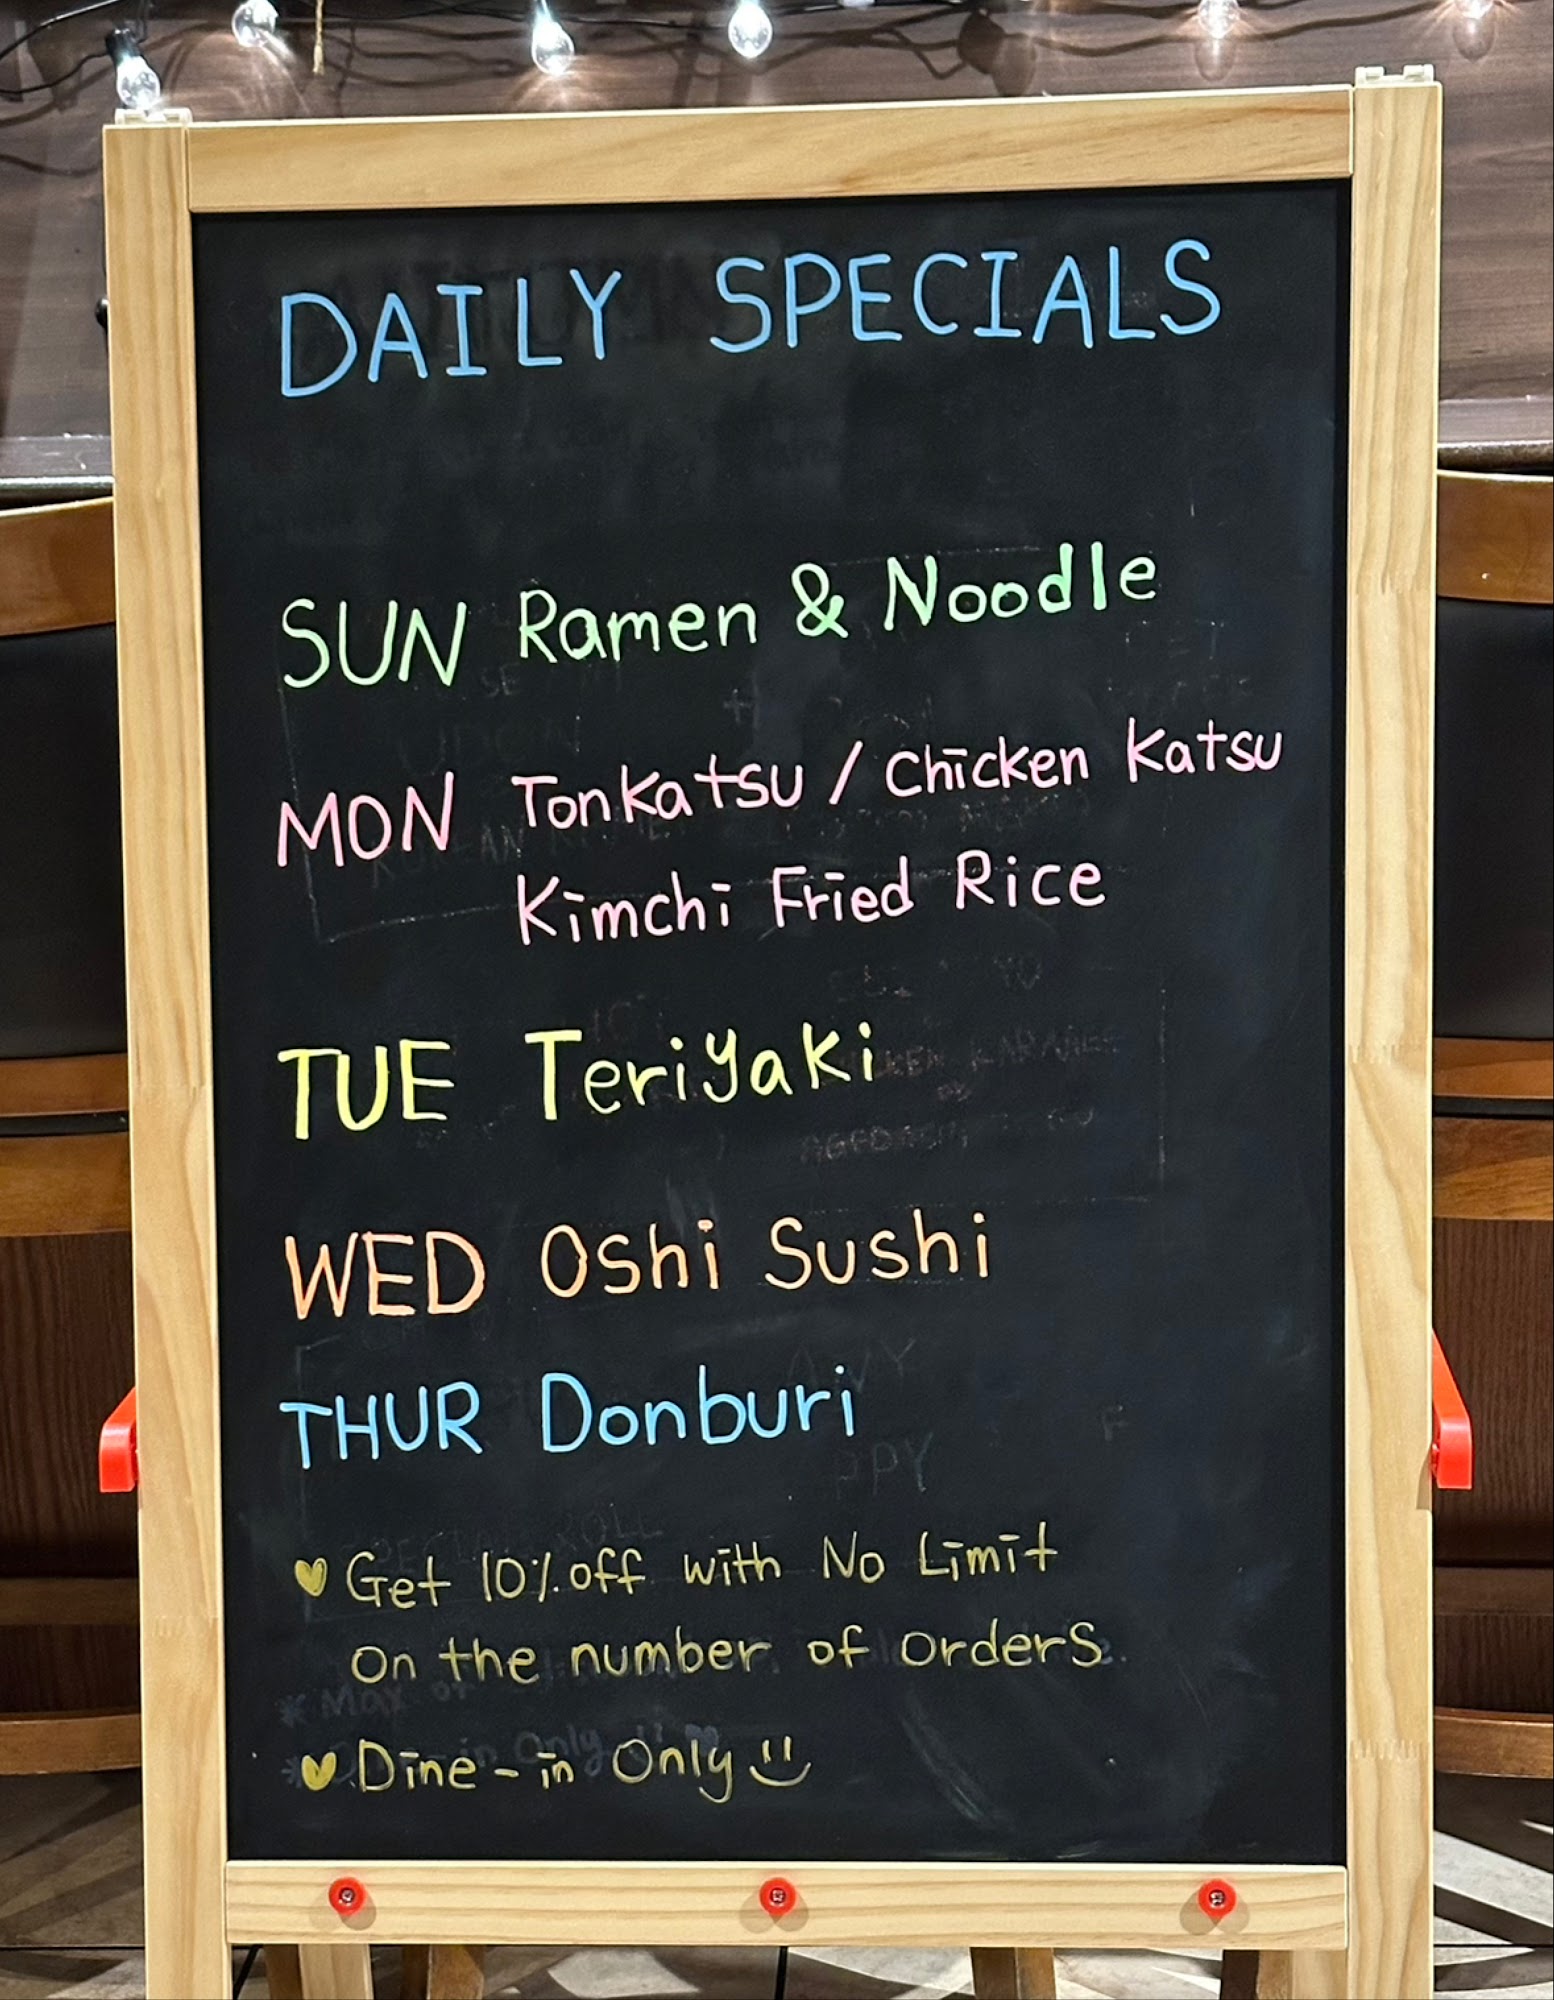 DAILY SPECIALS
SUN Ramen & Noodle
MON Tonkatsu / Chicken Katsu
Kimchi Fried Rice
TUE Teriyaki
WED Oshi Sushi
THUR Donburi
♥ Get 10% off with No Limit
on the number of orders.
♥ Dine-in Only